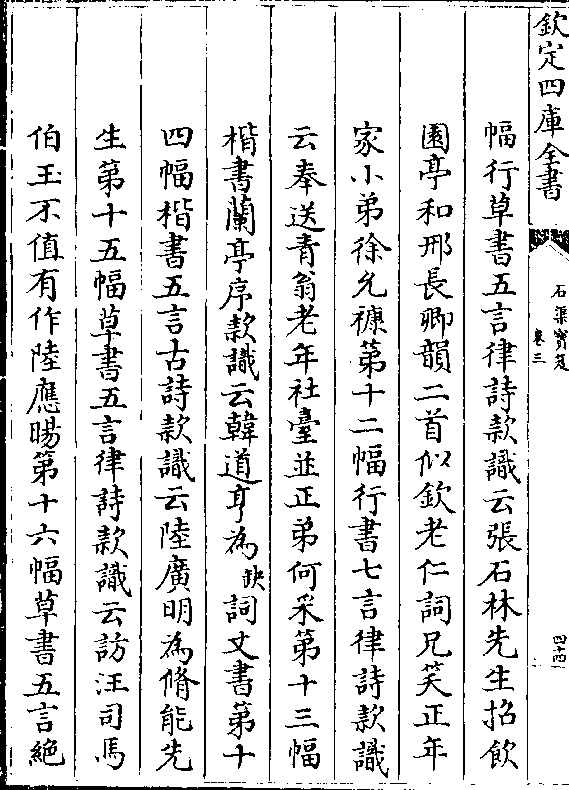 欽定四庫全書
石渠寳笈
卷三
四十四
幅行草書五言律詩款識云張石林先生招飲
園亭和邢長卿韻二首似欽老仁詞兄笑正年
家小弟徐允𥛚第十二幅行書七言律詩款識
云奉送青翁老年社臺並正弟何采第十三幅
楷書蘭亭序款識云韓道亨為缺詞丈書第十
四幅楷書五言古詩款識云陸廣明為脩能先
生第十五幅草書五言律詩款識云訪汪司馬
伯玉不值有作陸應暘第十六幅草書五言絶